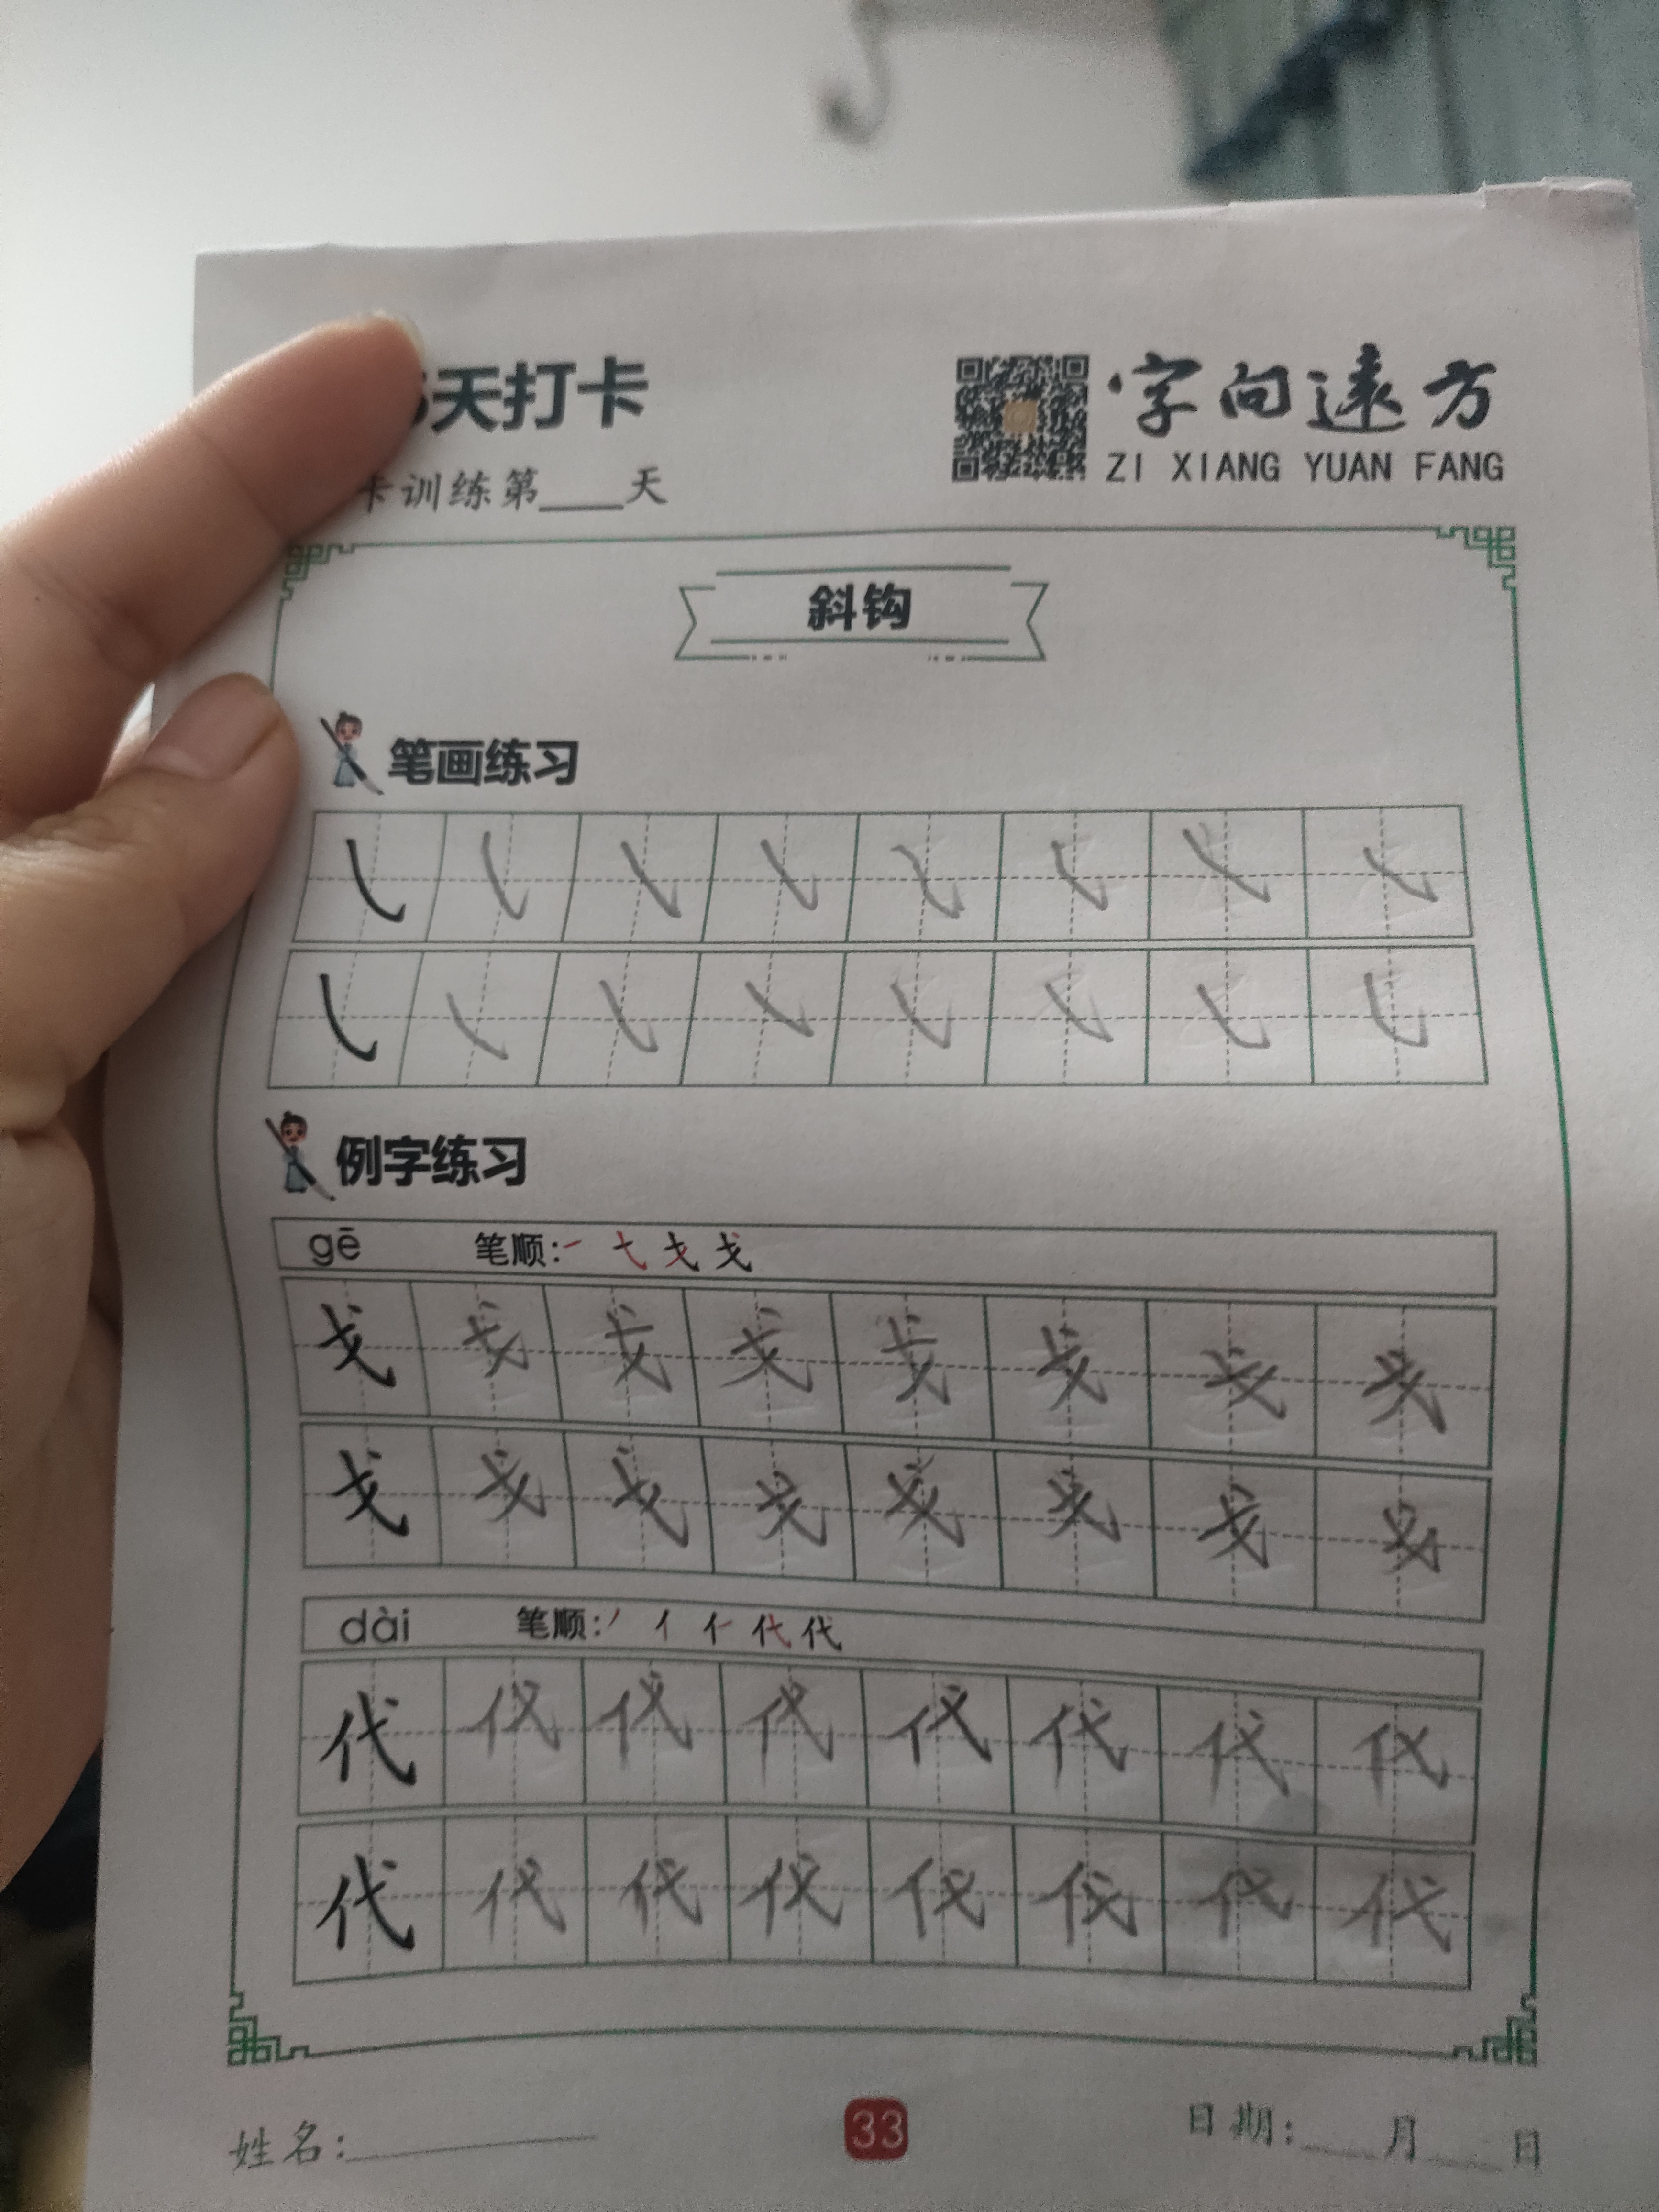 天打卡
字向遠方
卡训练第____天
ZI XIANG YUAN FANG
斜钩
笔画练习
例字练习
gē 笔顺:
戈 戈 戈 戈 戈 戈 戈 戈
戈 戈 戈 戈 戈 戈 戈 戈
dài 笔顺:
代 代 代 代 代 代 代 代
代 代 代 代 代 代 代 代
姓名:____ 33 日期:____月____日